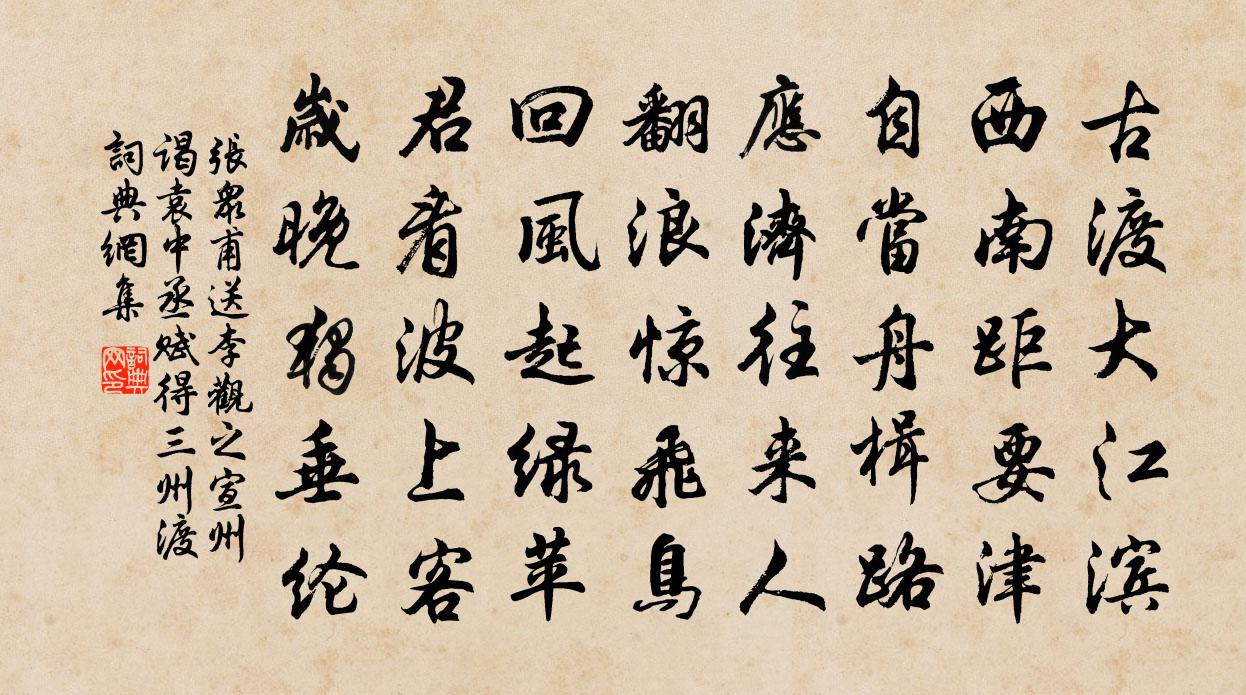 古渡大江滨
西南距要津
自當舟楫路
應濟往来人
翻浪惊飛鳥
回風起绿苹
君看波上客
歲晚獨垂纶
張眾甫送李觀之宣州
谒袁中丞赋得三州渡
詞典網集
詞典网印